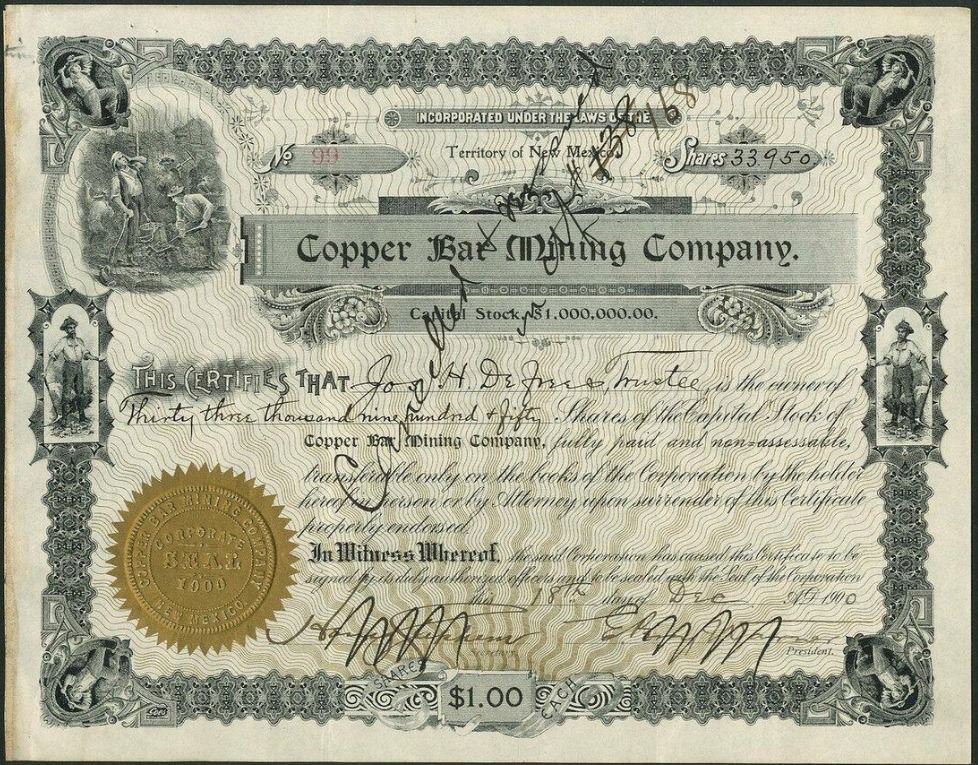 INCORPORATED UNDER THE LAWS OF THE
Territory of New Mexico.
No 99
Shares 33950.
Copper Bar Mining Company.
Capital Stock, $1,000,000.00.
THIS CERTIFIES THAT Jos. H. DeFrees Trustee is the owner of
Thirty three thousand nine hundred & fifty Shares of the Capital Stock of
Copper Bar Mining Company, fully paid and non-assessable,
transferable only on the books of the Corporation by the holder
hereof in person or by Attorney upon surrender of this Certificate
properly endorsed.
In Witness Whereof, the said Corporation has caused this Certificate to be
signed by its duly authorized officers and to be sealed with the Seal of the Corporation
this 18th day of Dec A.D. 1900
President.
SHARES $1.00 EACH
COPPER BAR MINING COMPANY
CORPORATE
SEAL
1900
NEW MEXICO
Cancelled